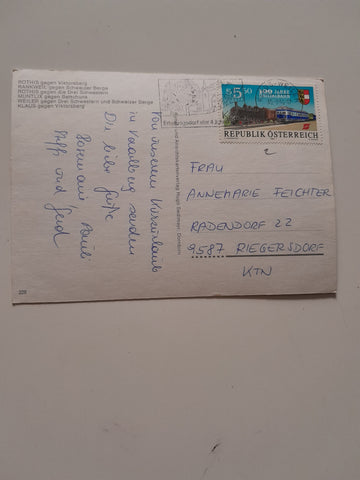 RÖTHIS gegen Viktorsberg
RANKWEIL gegen Schweizer Berge
RÖTHIS gegen die Drei Schwestern
MUNTLIX gegen Batschuns
WEILER gegen Drei Schwestern und Schweizer Berge
KLAUS gegen Viktorsberg
S5.50
REPUBLIK ÖSTERREICH
Von unserem Kurzurlaub
in Vorarlberg senden
Dir liebe Grüße
FRAU
ANNEMARIE FEICHTER
RADENDORF 22
9587 RIEGERSDORF
KTN
228